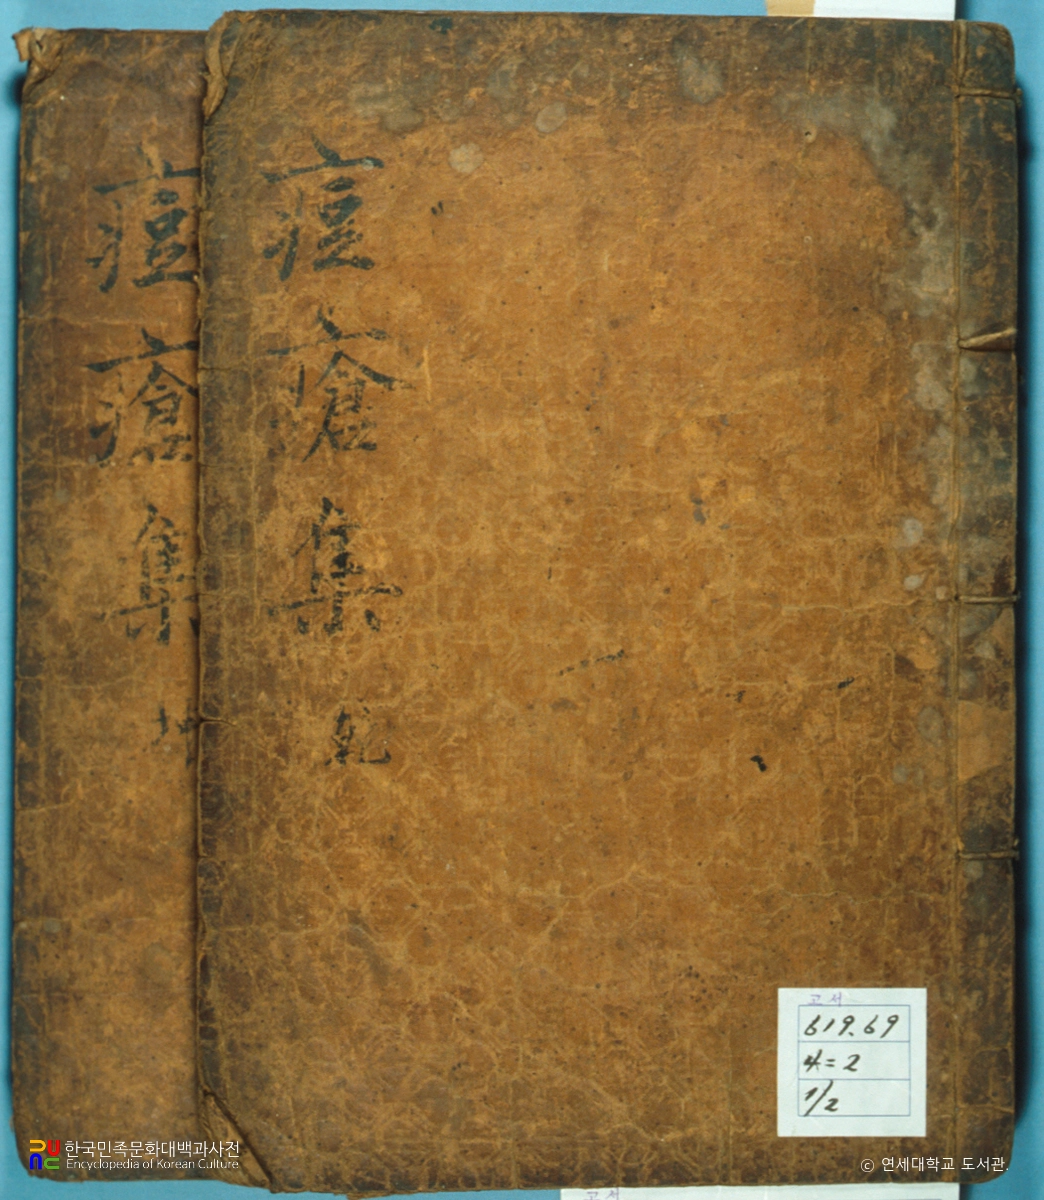 痘瘡集 乾
痘瘡集 坤
고서
619.69
1/2
고서
한국민족문화대백과사전
Encyclopedia of Korean Culture
© 연세대학교 도서관.